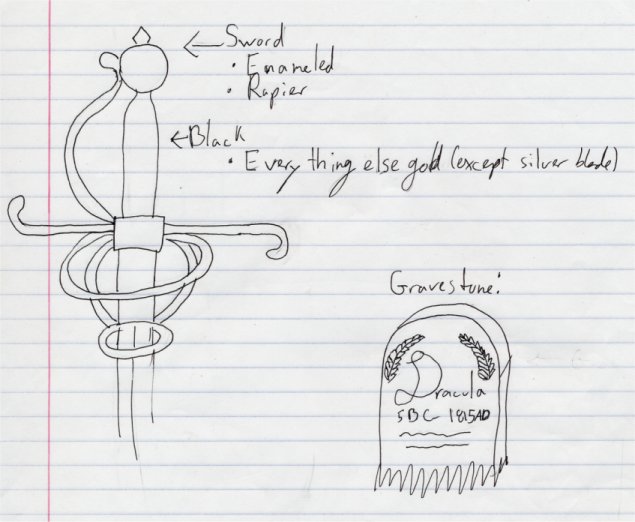 Sword
• Enameled
• Rapier
Black
• Every thing else gold (except silver blade)
Gravestone:
Dracula
5BC 1815AD